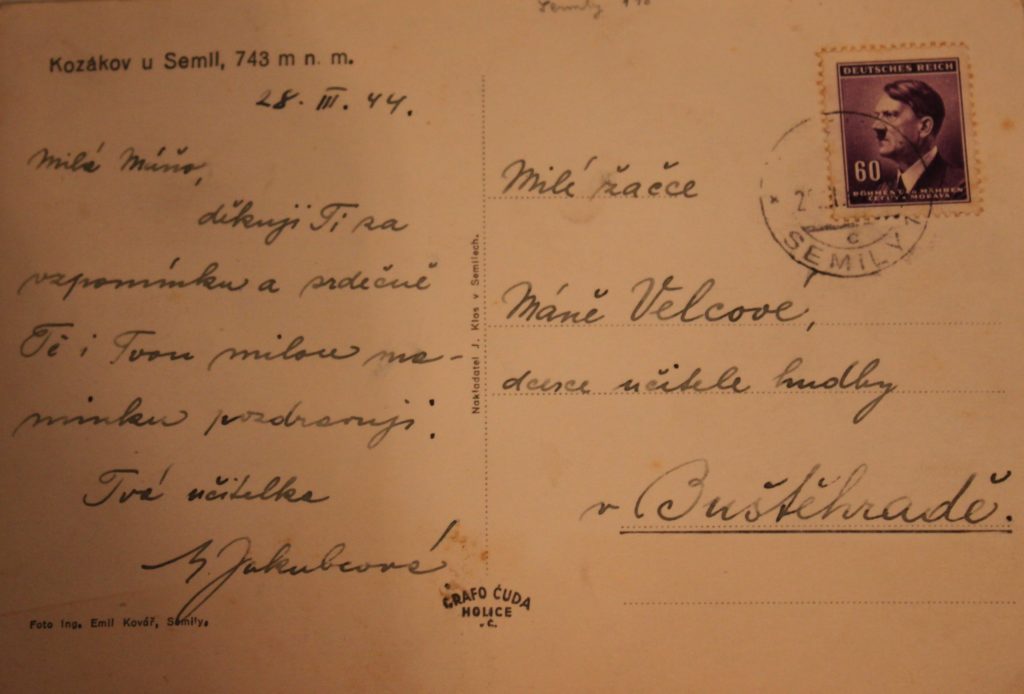 Kozákov u Semil, 743 m n. m.
28. III. 44.
Milá Máňo,
děkuji Ti za
vzpomínku a srdečně
Tě i Tvou milou ma-
minku pozdravuji.
Tvá učitelka
Jakubcová
Foto Ing. Emil Kovář, Semily.
Nakladatel J. Klos v Semilech.
GRAFO ČUDA
HOLICE
v. Č.
DEUTSCHES REICH
60
BÖHMEN UND MÄHREN
ČECHY A MORAVA
SEMILY
c
Milé žačce
Máně Velcové,
dcerce učitele hudby
v Buštěhradě.